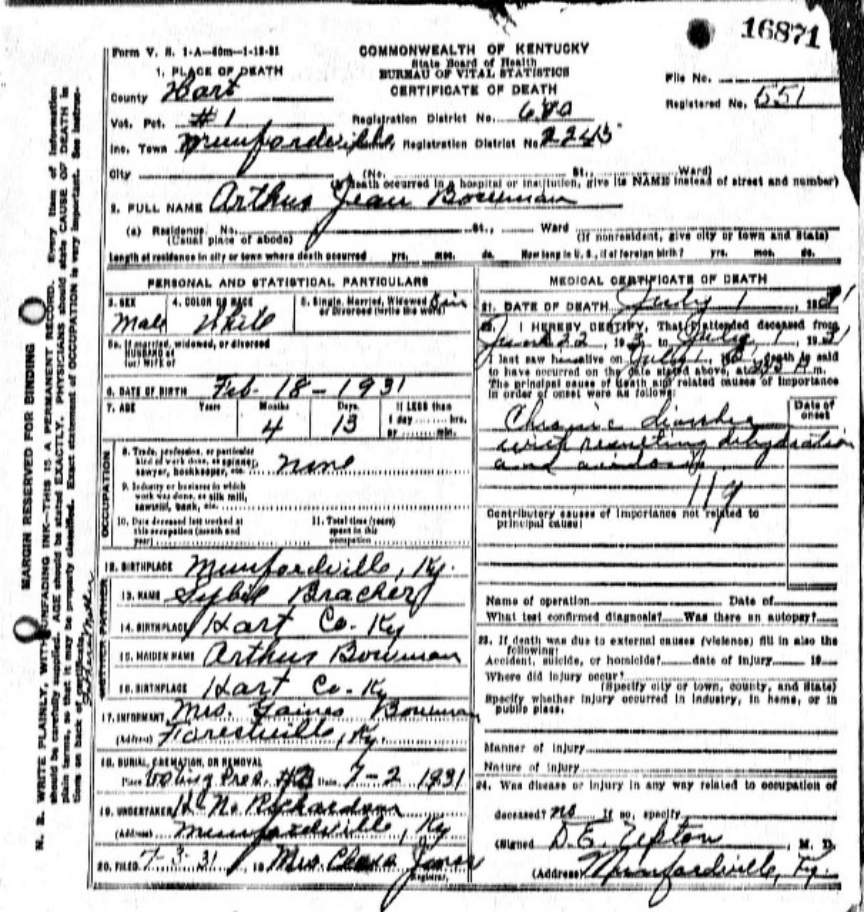 16871
Form V. S. 1-A—50m—1-12-31
COMMONWEALTH OF KENTUCKY
State Board of Health
BUREAU OF VITAL STATISTICS
CERTIFICATE OF DEATH
File No.
Registered No. 551
1. PLACE OF DEATH
County Hart
Vot. Pct. #1 Registration District No.
Inc. Town Munfordville Registration District No. 2245
City (No. St., Ward)
(If death occurred in a hospital or institution, give its NAME instead of street and number)
2. FULL NAME Arthur Jean Bowman
(a) Residence. No. St., Ward
(Usual place of abode) (If nonresident, give city or town and State)
Length of residence in city or town where death occurred yrs. mos. ds. How long in U. S., if of foreign birth? yrs. mos. ds.
PERSONAL AND STATISTICAL PARTICULARS
3. SEX 4. COLOR OR RACE 5. Single, Married, Widowed or Divorced (write the word) Sin
Male White
5a. If married, widowed, or divorced
HUSBAND of
(or) WIFE of
6. DATE OF BIRTH Feb. 18 - 1931
7. AGE Years Months Days If LESS than
4 13 1 day hrs.
or min.
OCCUPATION
8. Trade, profession, or particular
kind of work done, as spinner,
sawyer, bookkeeper, etc. none
9. Industry or business in which
work was done, as silk mill,
sawmill, bank, etc.
10. Date deceased last worked at
this occupation (month and
year)
11. Total time (years)
spent in this
occupation
12. BIRTHPLACE Munfordville, Ky.
13. NAME Sybil Bracher
14. BIRTHPLACE Hart Co. Ky
15. MAIDEN NAME Arthur Bowman
16. BIRTHPLACE Hart Co. Ky
17. INFORMANT Mrs. Gaines Bowman
(Address) Forestville, Ky.
18. BURIAL, CREMATION, OR REMOVAL
Place Voting Prec. #2 Date 7-2 1931
19. UNDERTAKER H. N. Richardson
(Address) Munfordville, Ky
20. FILED 7-3-31, 19 Mrs. Clara Jones
Registrar.
MEDICAL CERTIFICATE OF DEATH
21. DATE OF DEATH July 1, 1931
22. I HEREBY CERTIFY, That I attended deceased from
June 22, 193 to July 1, 193
I last saw him alive on July 1, 193 death is said
to have occurred on the date stated above, at m.
The principal cause of death and related causes of importance
in order of onset were as follows:
Date of onset
Chronic diarrhea
with resulting dehydration
and acidosis
119
Contributory causes of importance not related to
principal cause:
Name of operation Date of
What test confirmed diagnosis? Was there an autopsy?
23. If death was due to external causes (violence) fill in also the
following:
Accident, suicide, or homicide? date of injury 19
Where did injury occur?
(Specify city or town, county, and State)
Specify whether injury occurred in industry, in home, or in
public place.
Manner of injury
Nature of injury
24. Was disease or injury in any way related to occupation of
deceased? no If so, specify
(Signed D. E. Tepton, M. D.
(Address) Munfordville, Ky.
MARGIN RESERVED FOR BINDING
N. B. WRITE PLAINLY, WITH UNFADING INK—THIS IS A PERMANENT RECORD. Every item of information
should be carefully supplied. AGE should be stated EXACTLY. PHYSICIANS should state CAUSE OF DEATH in
plain terms, so that it may be properly classified. Exact statement of OCCUPATION is very important. See instruc-
tions on back of certificate.